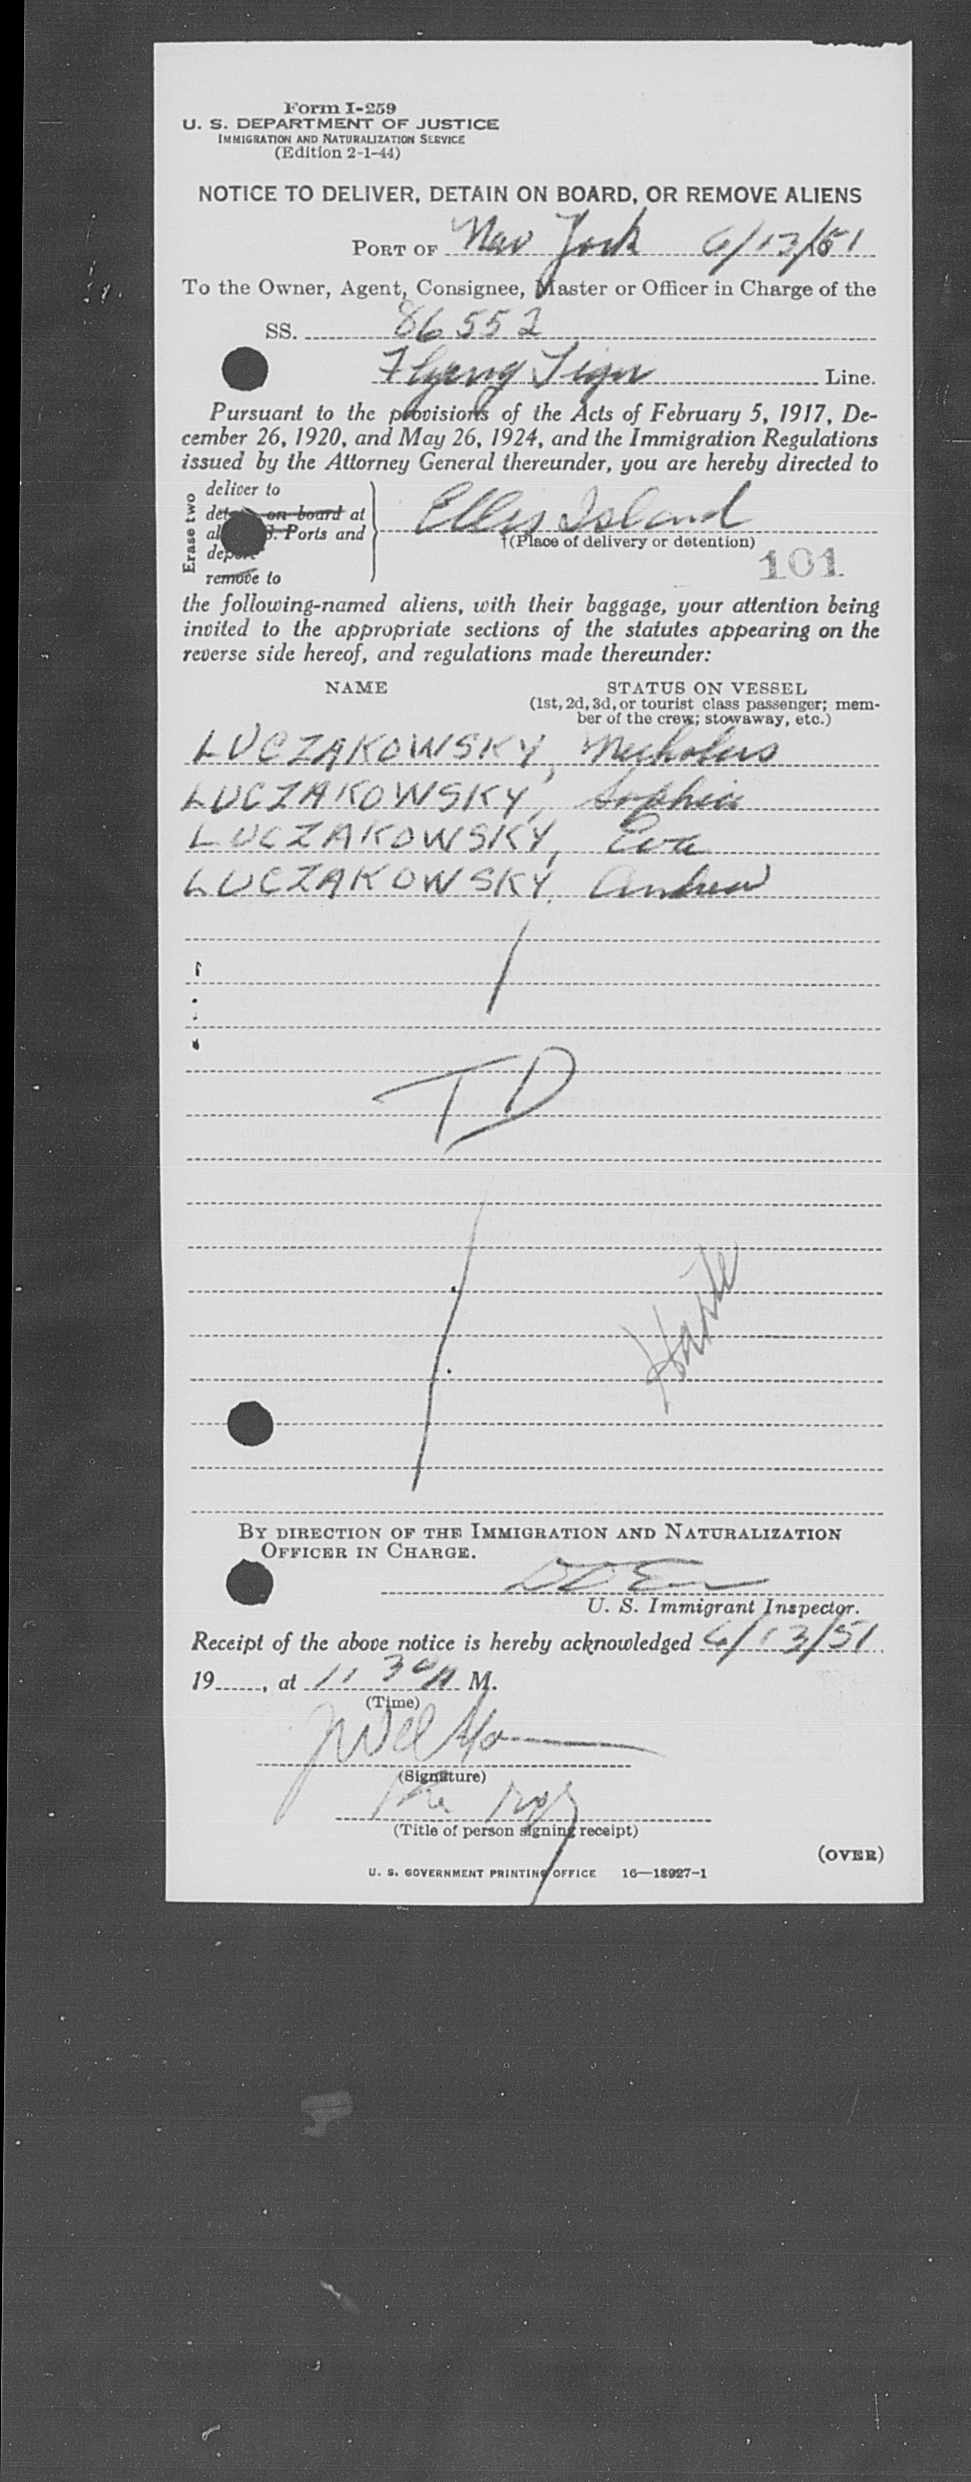 Form I-259
U. S. DEPARTMENT OF JUSTICE
IMMIGRATION AND NATURALIZATION SERVICE
(Edition 2-1-44)
NOTICE TO DELIVER, DETAIN ON BOARD, OR REMOVE ALIENS
PORT OF New York 6/13/51
To the Owner, Agent, Consignee, Master or Officer in Charge of the
SS. 86552
Flying Tiger Line.
Pursuant to the provisions of the Acts of February 5, 1917, De-
cember 26, 1920, and May 26, 1924, and the Immigration Regulations
issued by the Attorney General thereunder, you are hereby directed to
Erase two
deliver to
on board at
Ports and
remove to
Ellis Island
†(Place of delivery or detention)
101
the following-named aliens, with their baggage, your attention being
invited to the appropriate sections of the statutes appearing on the
reverse side hereof, and regulations made thereunder:
NAME STATUS ON VESSEL
(1st, 2d, 3d, or tourist class passenger; mem-
ber of the crew; stowaway, etc.)
LUCZAKOWSKY, Nicholas
LUCZAKOWSKY, Sophia
LUCZAKOWSKY, Eva
LUCZAKOWSKY, Andrew
TD
BY DIRECTION OF THE IMMIGRATION AND NATURALIZATION
OFFICER IN CHARGE.
U. S. Immigrant Inspector.
Receipt of the above notice is hereby acknowledged 6/13/51
19......, at 11 30 A M.
(Time)
(Signature)
(Title of person signing receipt)
(OVER)
U. S. GOVERNMENT PRINTING OFFICE 16—18927-1